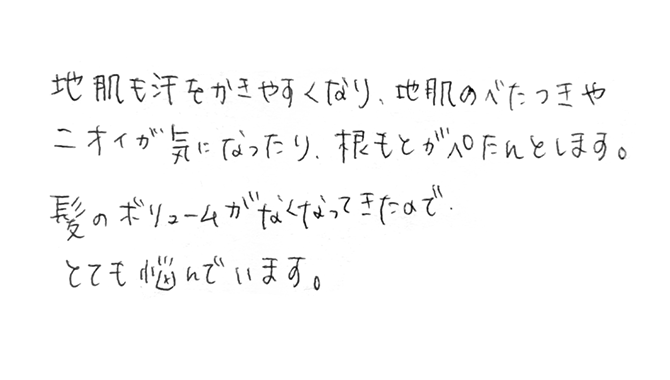 地肌も汗をかきやすくなり、地肌のべたつきや
ニオイが気になったり、根もとがペたんとします。
髪のボリュームがなくなってきたので、
とても悩んでいます。